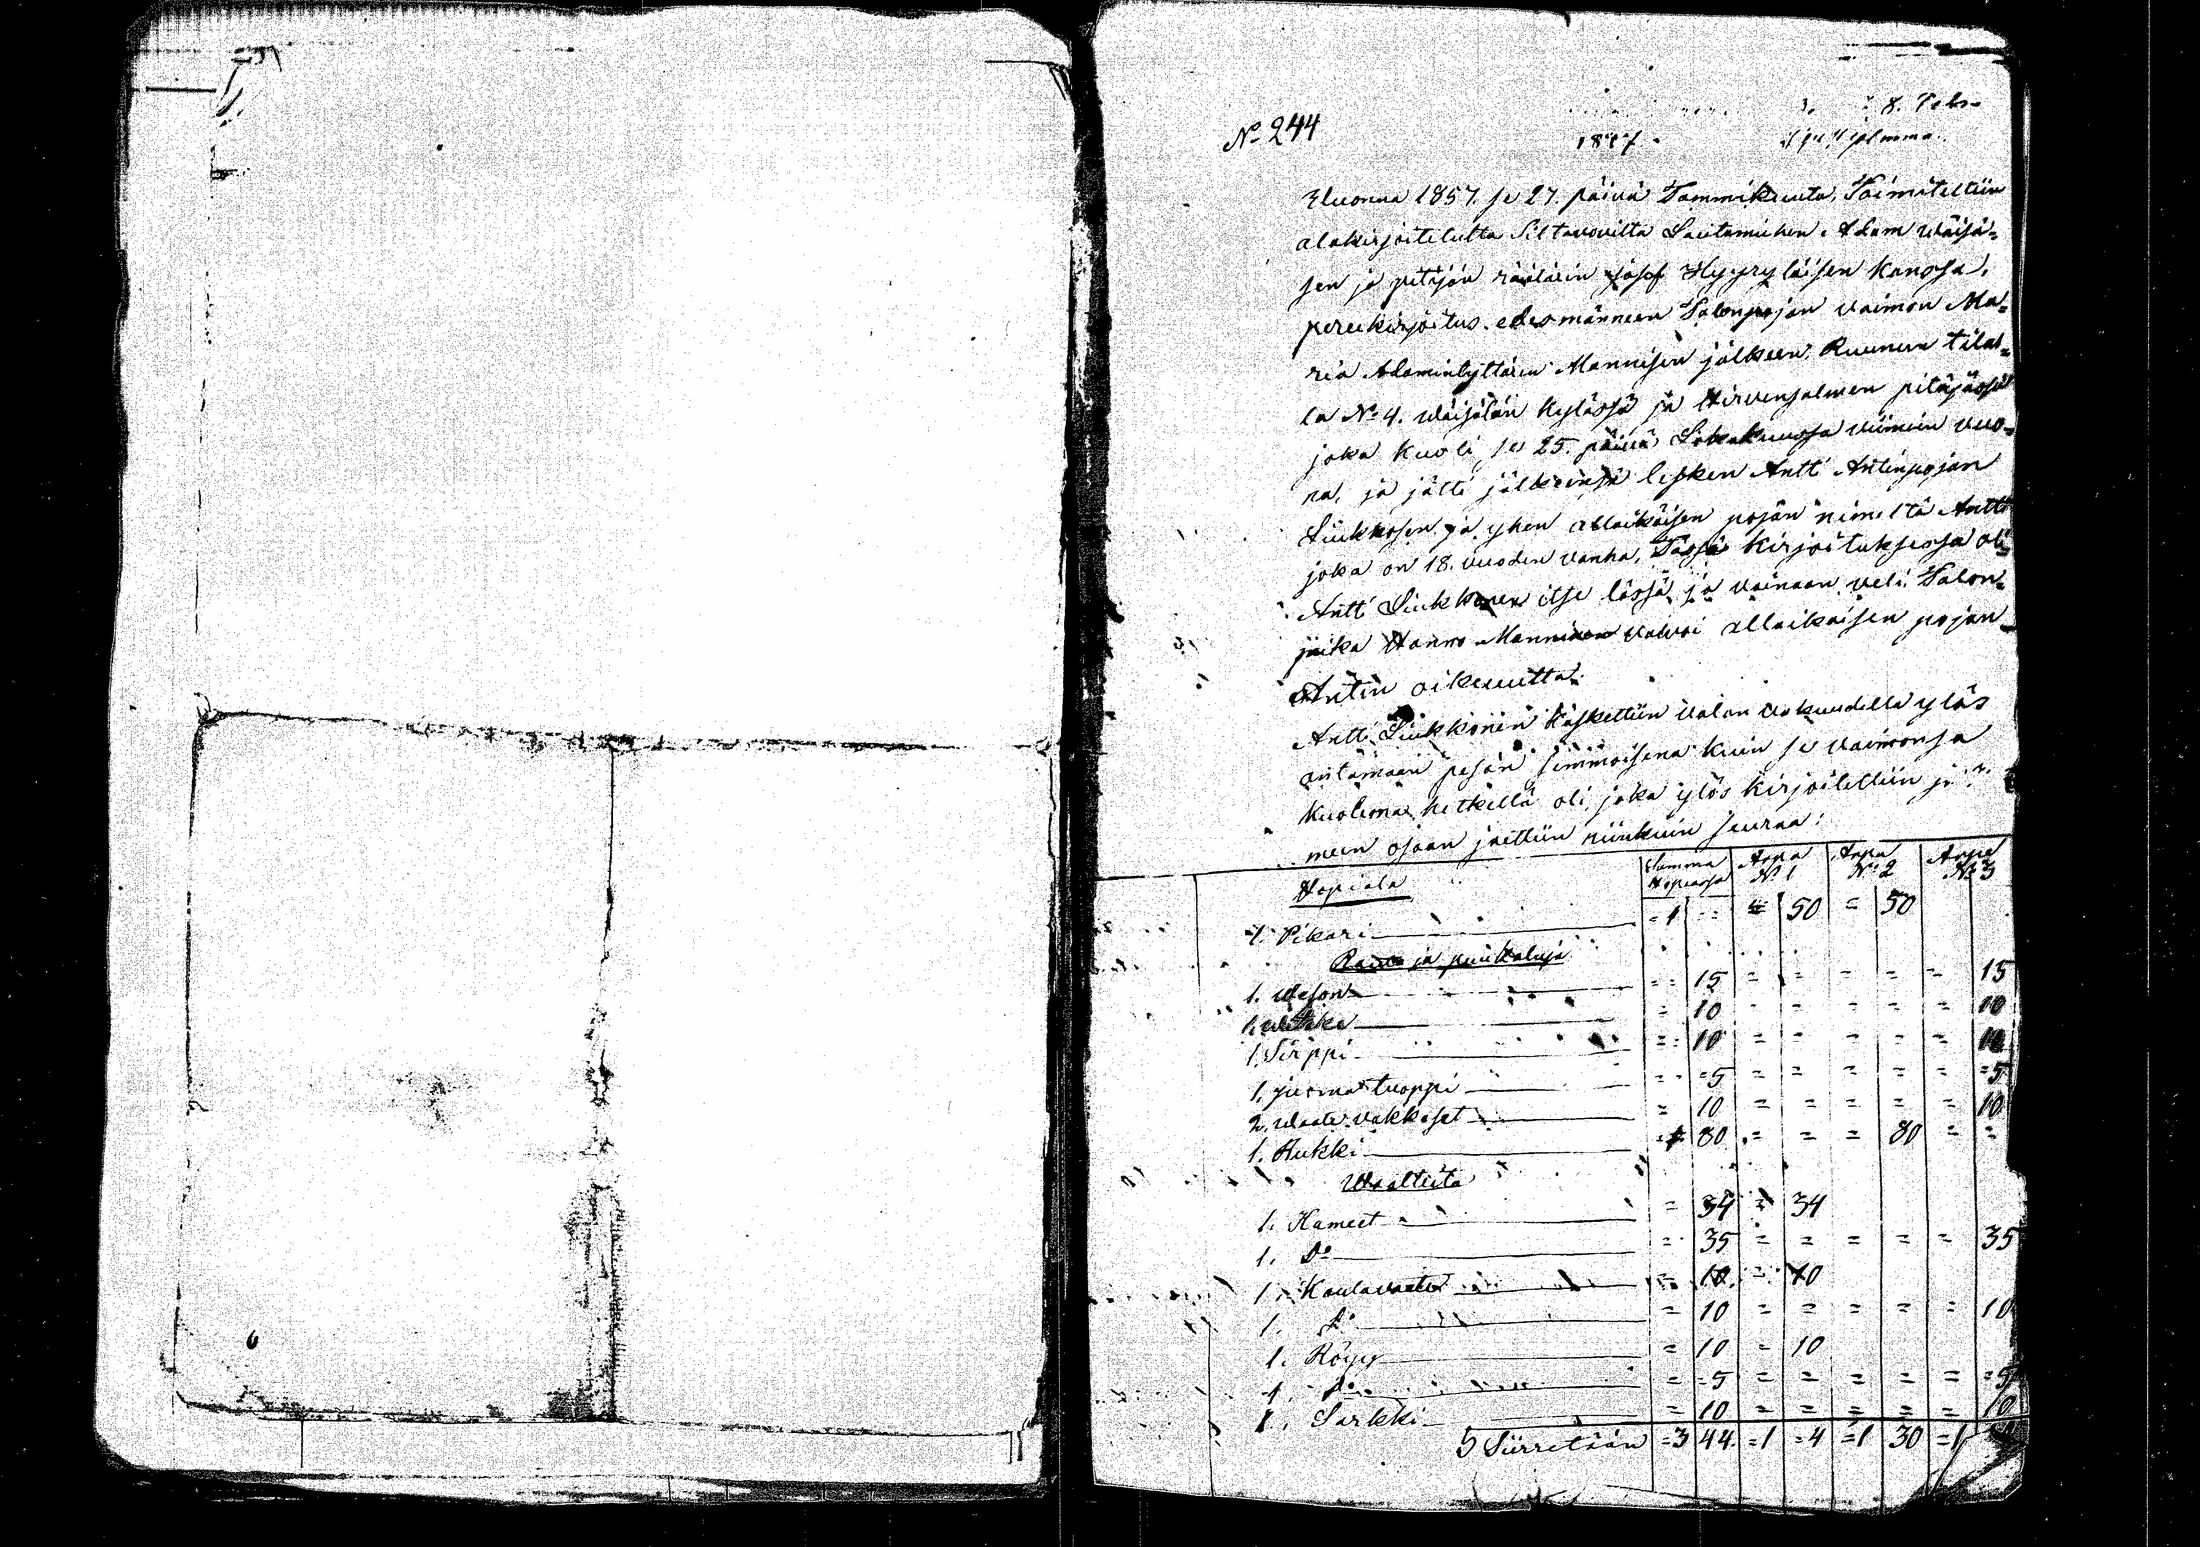 8. Febr
No 244
Wuonna 1857. se 27. päivä Tammikuuta, Toimiteltiin
alakirjoitelulta Siltavovilta Lautamiehen Adam Wäisä=
sen ja pitäjän räätälin Josef Hyyryläisen kansa,
perukirjoitus edesmänneen Talonpojan vaimon Ma=
ria Adamintyttären Mannisen jälkeen Ruunun tilal=
la No 4. Wäisälän kylässä ja Hirvensalmen pitäjässä
joka kuoli se 25. päivä Lokakuussa viimein vuo=
na, ja jätti jälkeinsä lesken Antti Antinpojan
Liukkosen ja yhen allaikäisen pojan nimeltä Antti
joka on 18. vuoden vanha, Tässä kirjoituksessa oli
Antti Liukkonen itse lässä, ja vainaan veli Talon=
poika Hannes Manninen valvoi allaikäisen pojan
Antin oikeuutta.
Antti Liukkonen käskettiin valan vakuudella ylös
antamaan pesän semmoisena kuin se vaimonsa
kuoleman hetkellä oli, joka ylös kirjoitettiin ja
meen osaan jaettiin niinkuin seuraa:
Summa Hopiassa Arpa No 1 Arpa No 2 Arpa No 3
Hopiata
1. Pikari = 1 = = = 50 = 50
Rauta ja puukaluja
1. Wesari = = 15 = = = = = 15
1. = 10 = = = = = 10
1. Sirppi = = 10 = = = = = 10
1. Juoma tuoppi = = 5 = = = = = = 5
2. Waate vakkaset = 10 = = = = = 10
1. Rukki = 80 = = = 80 = =
Waatteita
1. Hameet = 34 = 34
1. Do = 35 = = = = = 35
1. Kaulavaate = 10 = 10
1. Do = 10 = = = = = 10
1. Röyy = 10 = 10
1. Do = = 5 = = = = = = 5
1. Sarkki = 10 = = = = = 10
Siirretään = 3 44. = 1 = 4 = 1 30 = 1